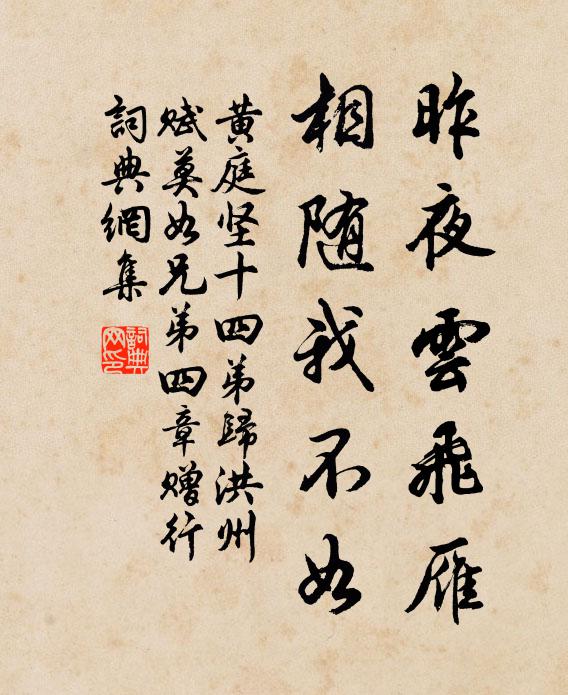 昨夜雲飛雁
相随我不如
黄庭坚十四弟歸洪州
赋莫如兄弟四章赠行
詞典網集
詞典网印